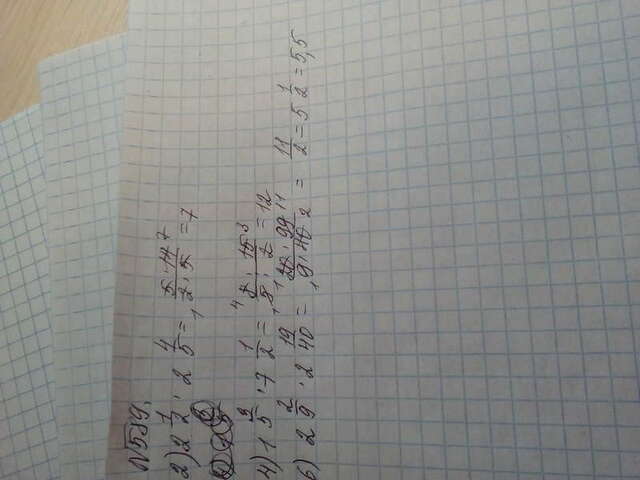 №589.
2) 2 1/2 · 2 4/5 = 5·14 7/1 2·5 = 7
4) 1 3/5 · 7 1/2 = 4 8·15 3/1 5·2 = 12
6) 2 2/9 · 2 19/40 = 1 20·99 11/1 9·40 2 = 11/2 = 5 1/2 = 5,5